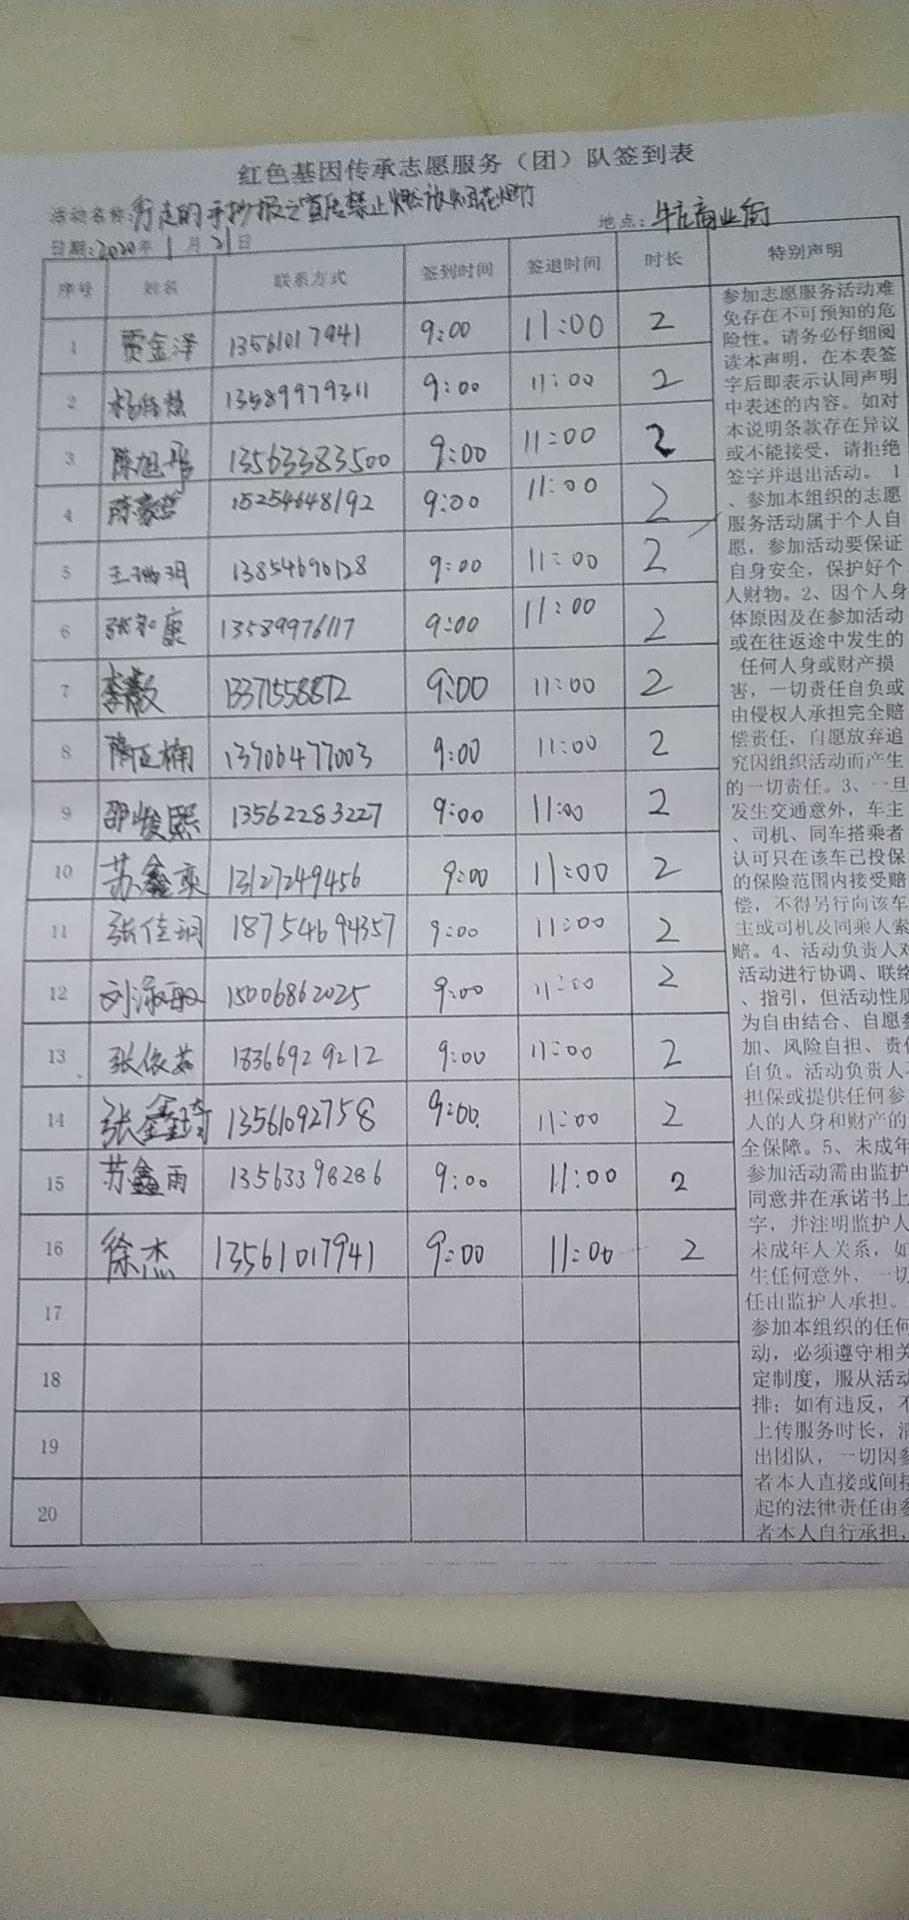 红色基因传承志愿服务（团）队签到表
活动名称:行走的手抄报之宣传禁止燃放烟花爆竹
地点: 商业街
日期:2020年 1 月 21 日
序号 姓名 联系方式 签到时间 签退时间 时长 特别声明
1 贾金泽 13561017941 9:00 11:00 2
2 13589979311 9:00 11:00 2
3 陈旭 13563383500 9:00 11:00 2
4 陈豪哲 15254648192 9:00 11:00 2
5 13854690128 9:00 11:00 2
6 康 13589976117 9:00 11:00 2
7 李 13371558872 9:00 11:00 2
8 隋正楠 13706477003 9:00 11:00 2
9 邵俊熙 13562283227 9:00 11:00 2
10 苏鑫 13127249456 9:00 11:00 2
11 张佳 18754694357 9:00 11:00 2
12 刘淑敏 15006862025 9:00 11:00 2
13 张依茹 18366929212 9:00 11:00 2
14 张鑫琦 13561092758 9:00 11:00 2
15 苏鑫雨 13563398286 9:00 11:00 2
16 徐杰 13561017941 9:00 11:00 2
17
18
19
20
参加志愿服务活动难
免存在不可预知的危
险性。请务必仔细阅
读本声明，在本表签
字后即表示认同声明
中表述的内容。如对
本说明条款存在异议
或不能接受，请拒绝
签字并退出活动。 1
、参加本组织的志愿
服务活动属于个人自
愿，参加活动要保证
自身安全，保护好个
人财物。2、因个人身
体原因及在参加活动
或在往返途中发生的
任何人身或财产损
害，一切责任自负或
由侵权人承担完全赔
偿责任，自愿放弃追
究因组织活动而产生
的一切责任。3、一旦
发生交通意外，车主
、司机、同车搭乘者
认可只在该车已投保
的保险范围内接受赔
偿，不得另行向该车
主或司机及同乘人索
赔。4、活动负责人对
活动进行协调、联络
、指引，但活动性质
为自由结合、自愿参
加、风险自担、责任
自负。活动负责人不
担保或提供任何参
人的人身和财产的
全保障。5、未成年
参加活动需由监护
同意并在承诺书上
字，并注明监护人
未成年人关系，如
生任何意外，一切
任由监护人承担。
参加本组织的任何
动，必须遵守相关
定制度，服从活动
排；如有违反，不
上传服务时长，清
出团队，一切因参
者本人直接或间接
起的法律责任由参
者本人自行承担，